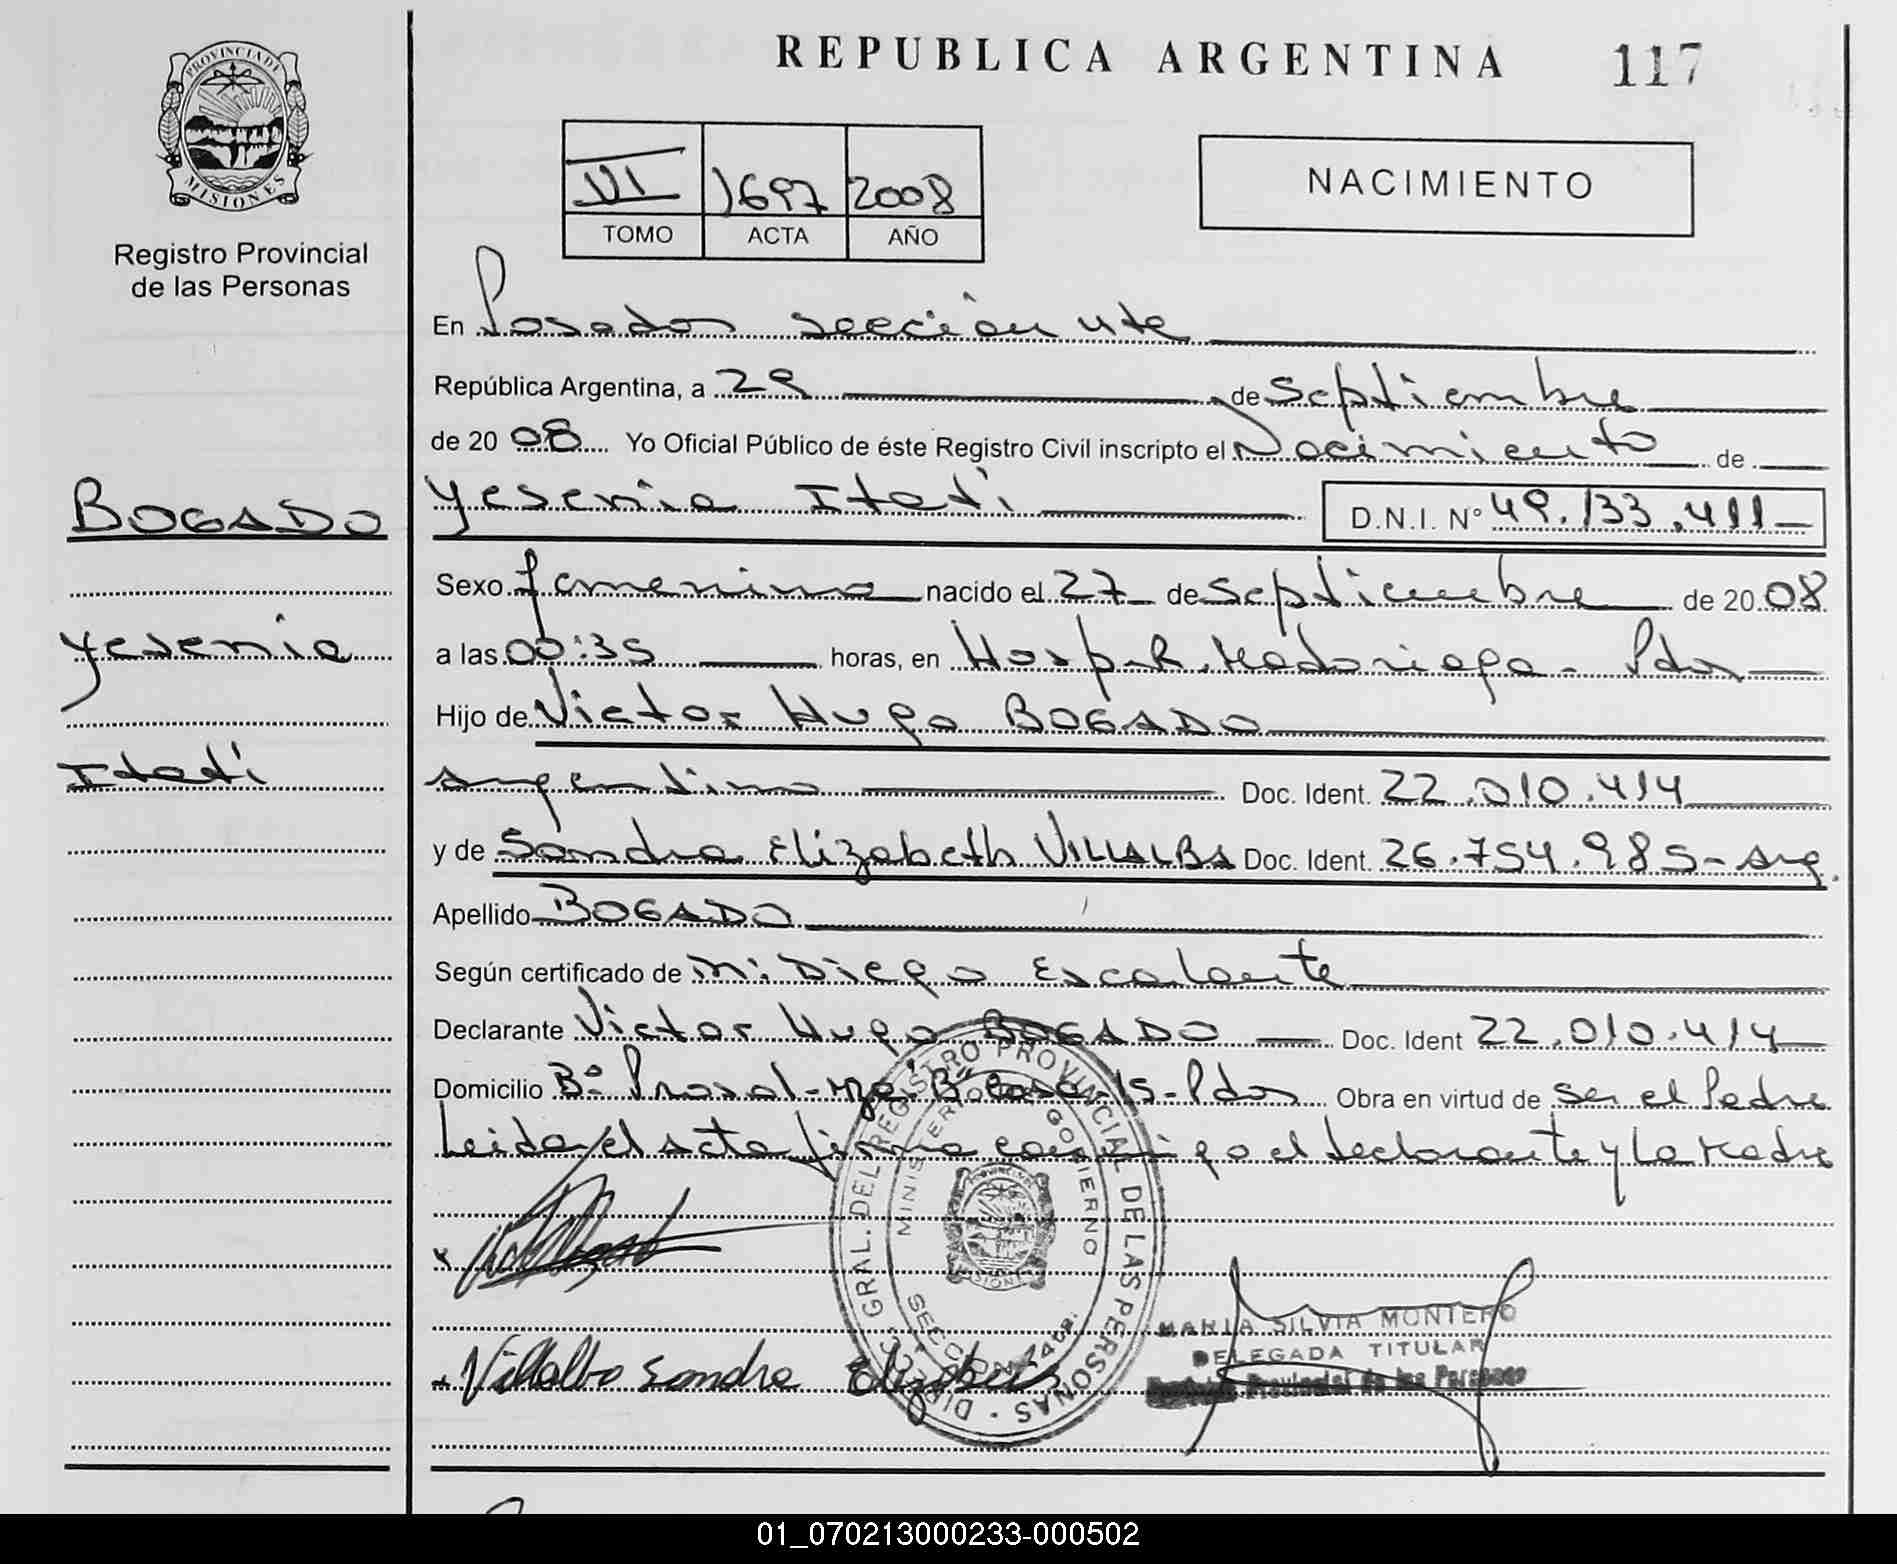 REPUBLICA ARGENTINA 117
PROVINCIA DE MISIONES
Registro Provincial
de las Personas
VI 1697 2008
TOMO ACTA AÑO
NACIMIENTO
En Posadas sección
República Argentina, a 29 de Septiembre
de 2008 Yo Oficial Público de éste Registro Civil inscripto el Nacimiento de
BOGADO
Yesenia
Itatí
Yesenia Itatí D.N.I. N° 49.133.411
Sexo femenino nacido el 27 de Septiembre de 2008
a las 00:35 horas, en Hosp. R. Madariaga - Pdas
Hijo de Victor Hugo BOGADO
argentino Doc. Ident. 22.010.414
y de Sandra Elizabeth VILLALBA Doc. Ident. 26.754.985- Arg.
Apellido BOGADO
Según certificado de Diego Escalante
Declarante Victor Hugo BOGADO Doc. Ident 22.010.414
Domicilio B° casa 15- Pdas Obra en virtud de ser el Padre
Leida el acta firma conmigo el declarante y la Madre
DIRECC. GRAL. DEL REGISTRO PROVINCIAL DE LAS PERSONAS
MINISTERIO DE GOBIERNO
SECCION
Villalba Sandra Elizabeth
MARIA SILVIA MONTERO
DELEGADA TITULAR
Registro Provincial de las Personas
01_070213000233-000502